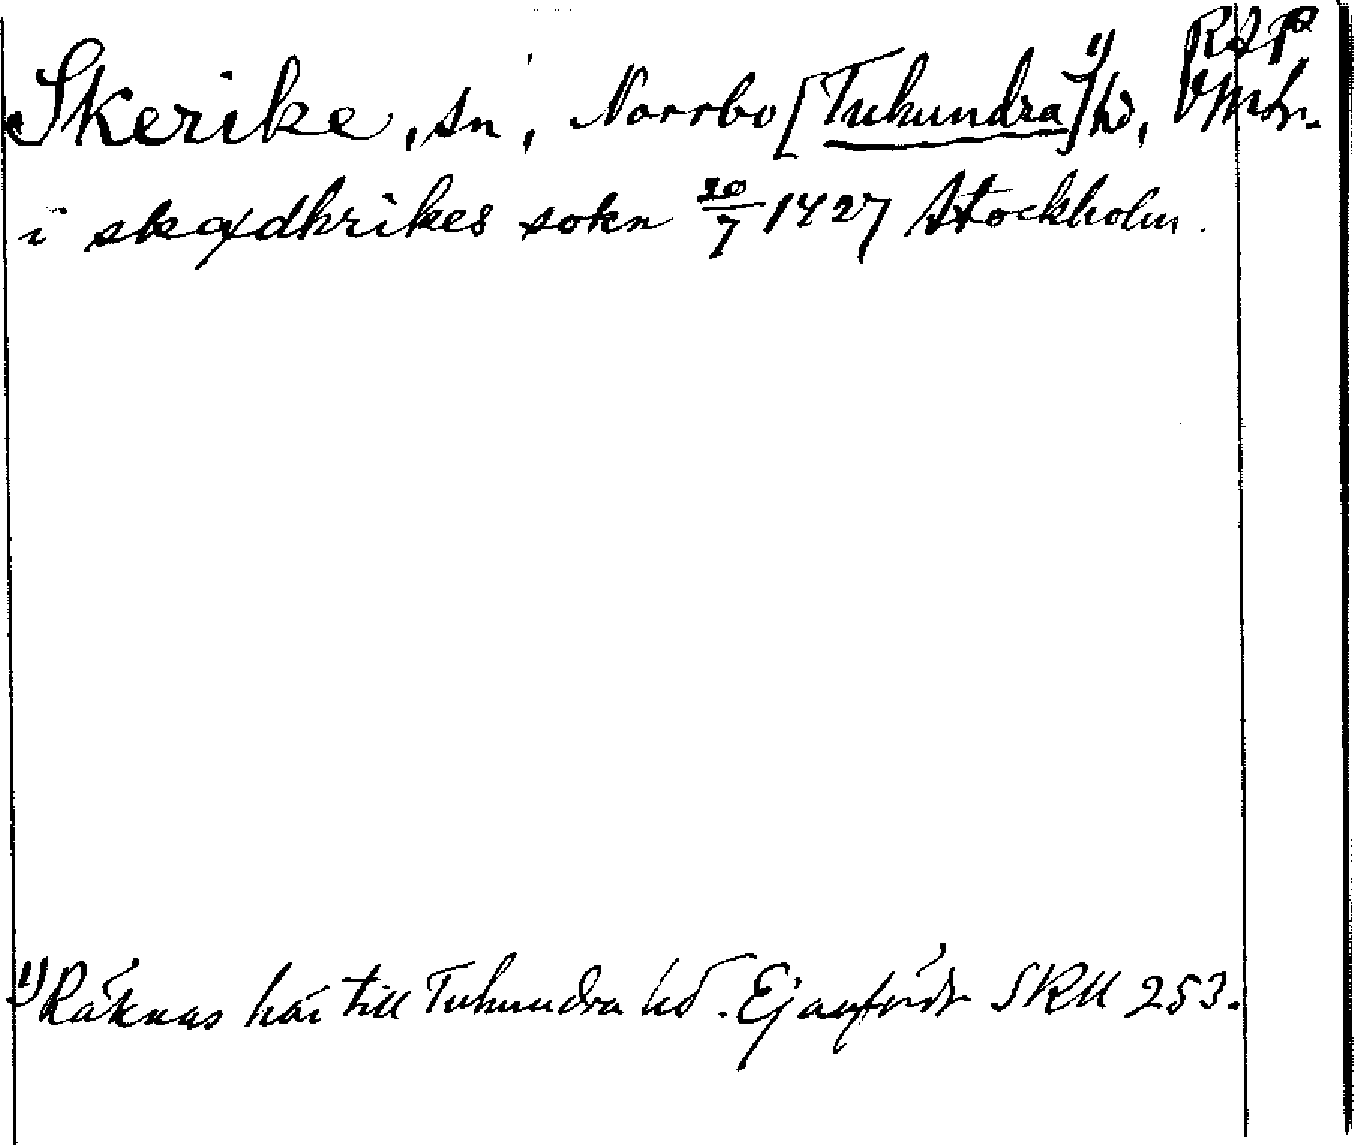 RAP
Skerike, sn, Norrbo [Tuhundra]¹⁾ hd, Vmln.
i skædhrikes sokn 20/7 1427 Stockholm.
¹⁾ Räknas här till Tuhundra hd. Ej anförd SRU 253.